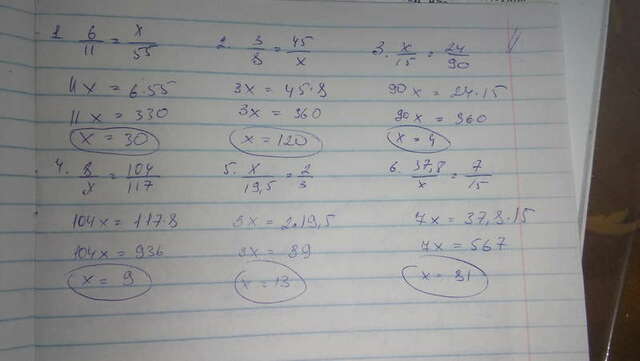 1. 6/11 = x/55
11x = 6·55
11x = 330
x = 30
2. 3/8 = 45/x
3x = 45·8
3x = 360
x = 120
3. x/15 = 24/90
90x = 24·15
90x = 360
x = 4
4. 8/x = 104/117
104x = 117·8
104x = 936
x = 9
5. x/19,5 = 2/3
3x = 2·19,5
3x = 39
x = 13
6. 37,8/x = 7/15
7x = 37,8·15
7x = 567
x = 81